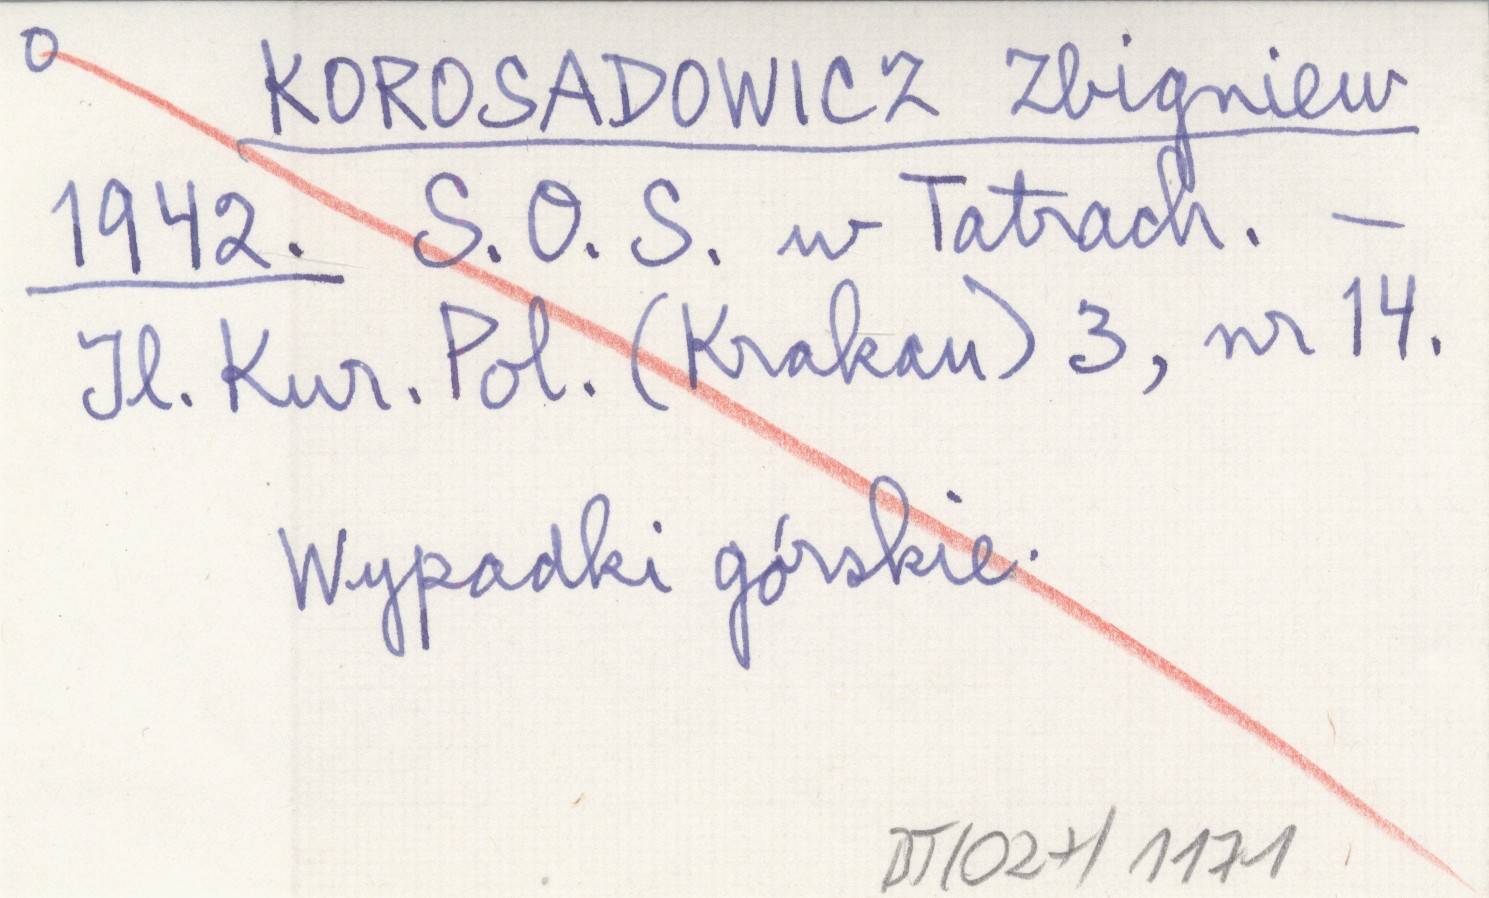 O KOROSADOWICZ Zbigniew
1942. S.O.S. w Tatrach. —
Il. Kur. Pol. (Krakau) 3, nr 14.
Wypadki górskie.
1171